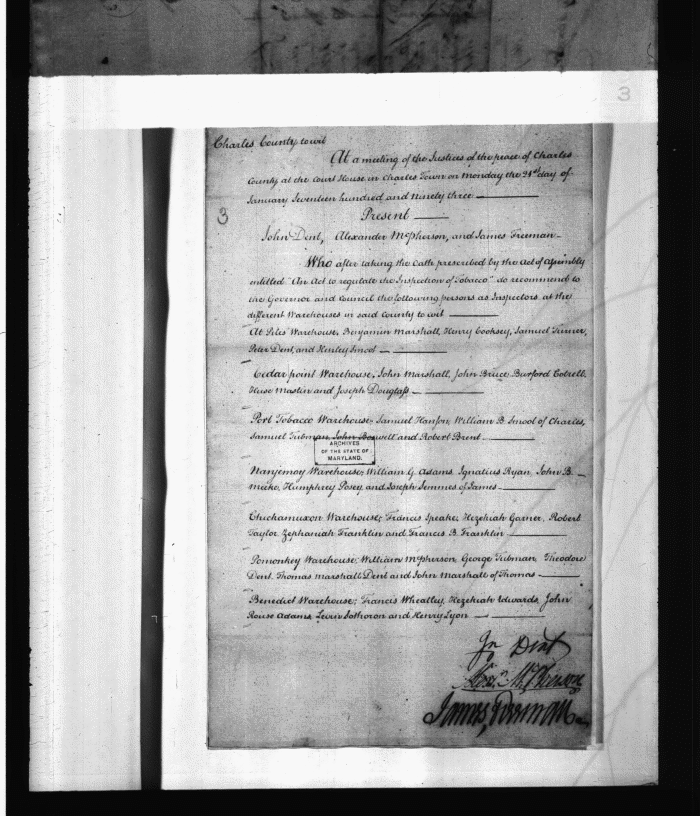 3
Charles County towit
At a meeting of the Justices of the peace of Charles
County at the Court House in Charles Town on Monday the day of
January Seventeen hundred and ninety three
3
Present
John Dent, Alexander McPherson, and James Freeman
Who after taking the Oath prescribed by the Act of Assembly
entitled "An Act to regulate the Inspection of Tobacco" do recommend to
the Governor and Council the following persons as Inspectors at the
different Warehouses in said County to wit
At Piles' Warehouse, Benjamin Marshall, Henry Cooksey, Samuel Turner,
Peter Dent, and Henley Smoot
Cedar point Warehouse, John Marshall, John Bruce, Burford Cottrell,
Mastin and Joseph Douglass
Port Tobacco Warehouse, Samuel Hanson, William B. Smoot of Charles,
Samuel Tubman, John Boswell and Robert Brent
ARCHIVES
OF THE STATE OF
MARYLAND.
Nanjemoy Warehouse, William G. Adams, Ignatius Ryan, John B.
Meeke, Humphrey Posey, and Joseph Semmes of James
Chickamuxon Warehouse, Francis Speake, Hezekiah Garner, Robert
Taylor, Zephaniah Franklin and Francis B. Franklin
Pomonkey Warehouse, William McPherson, George Tubman, Theodore
Dent, Thomas Marshall Dent and John Marshall of Thomas
Benedict Warehouse, Francis Wheatley, Hezekiah Edwards, John
Rouse Adams, Lewis Sothoron and Henry Lyon
Jn Dent
Alexr McPherson
James Freeman